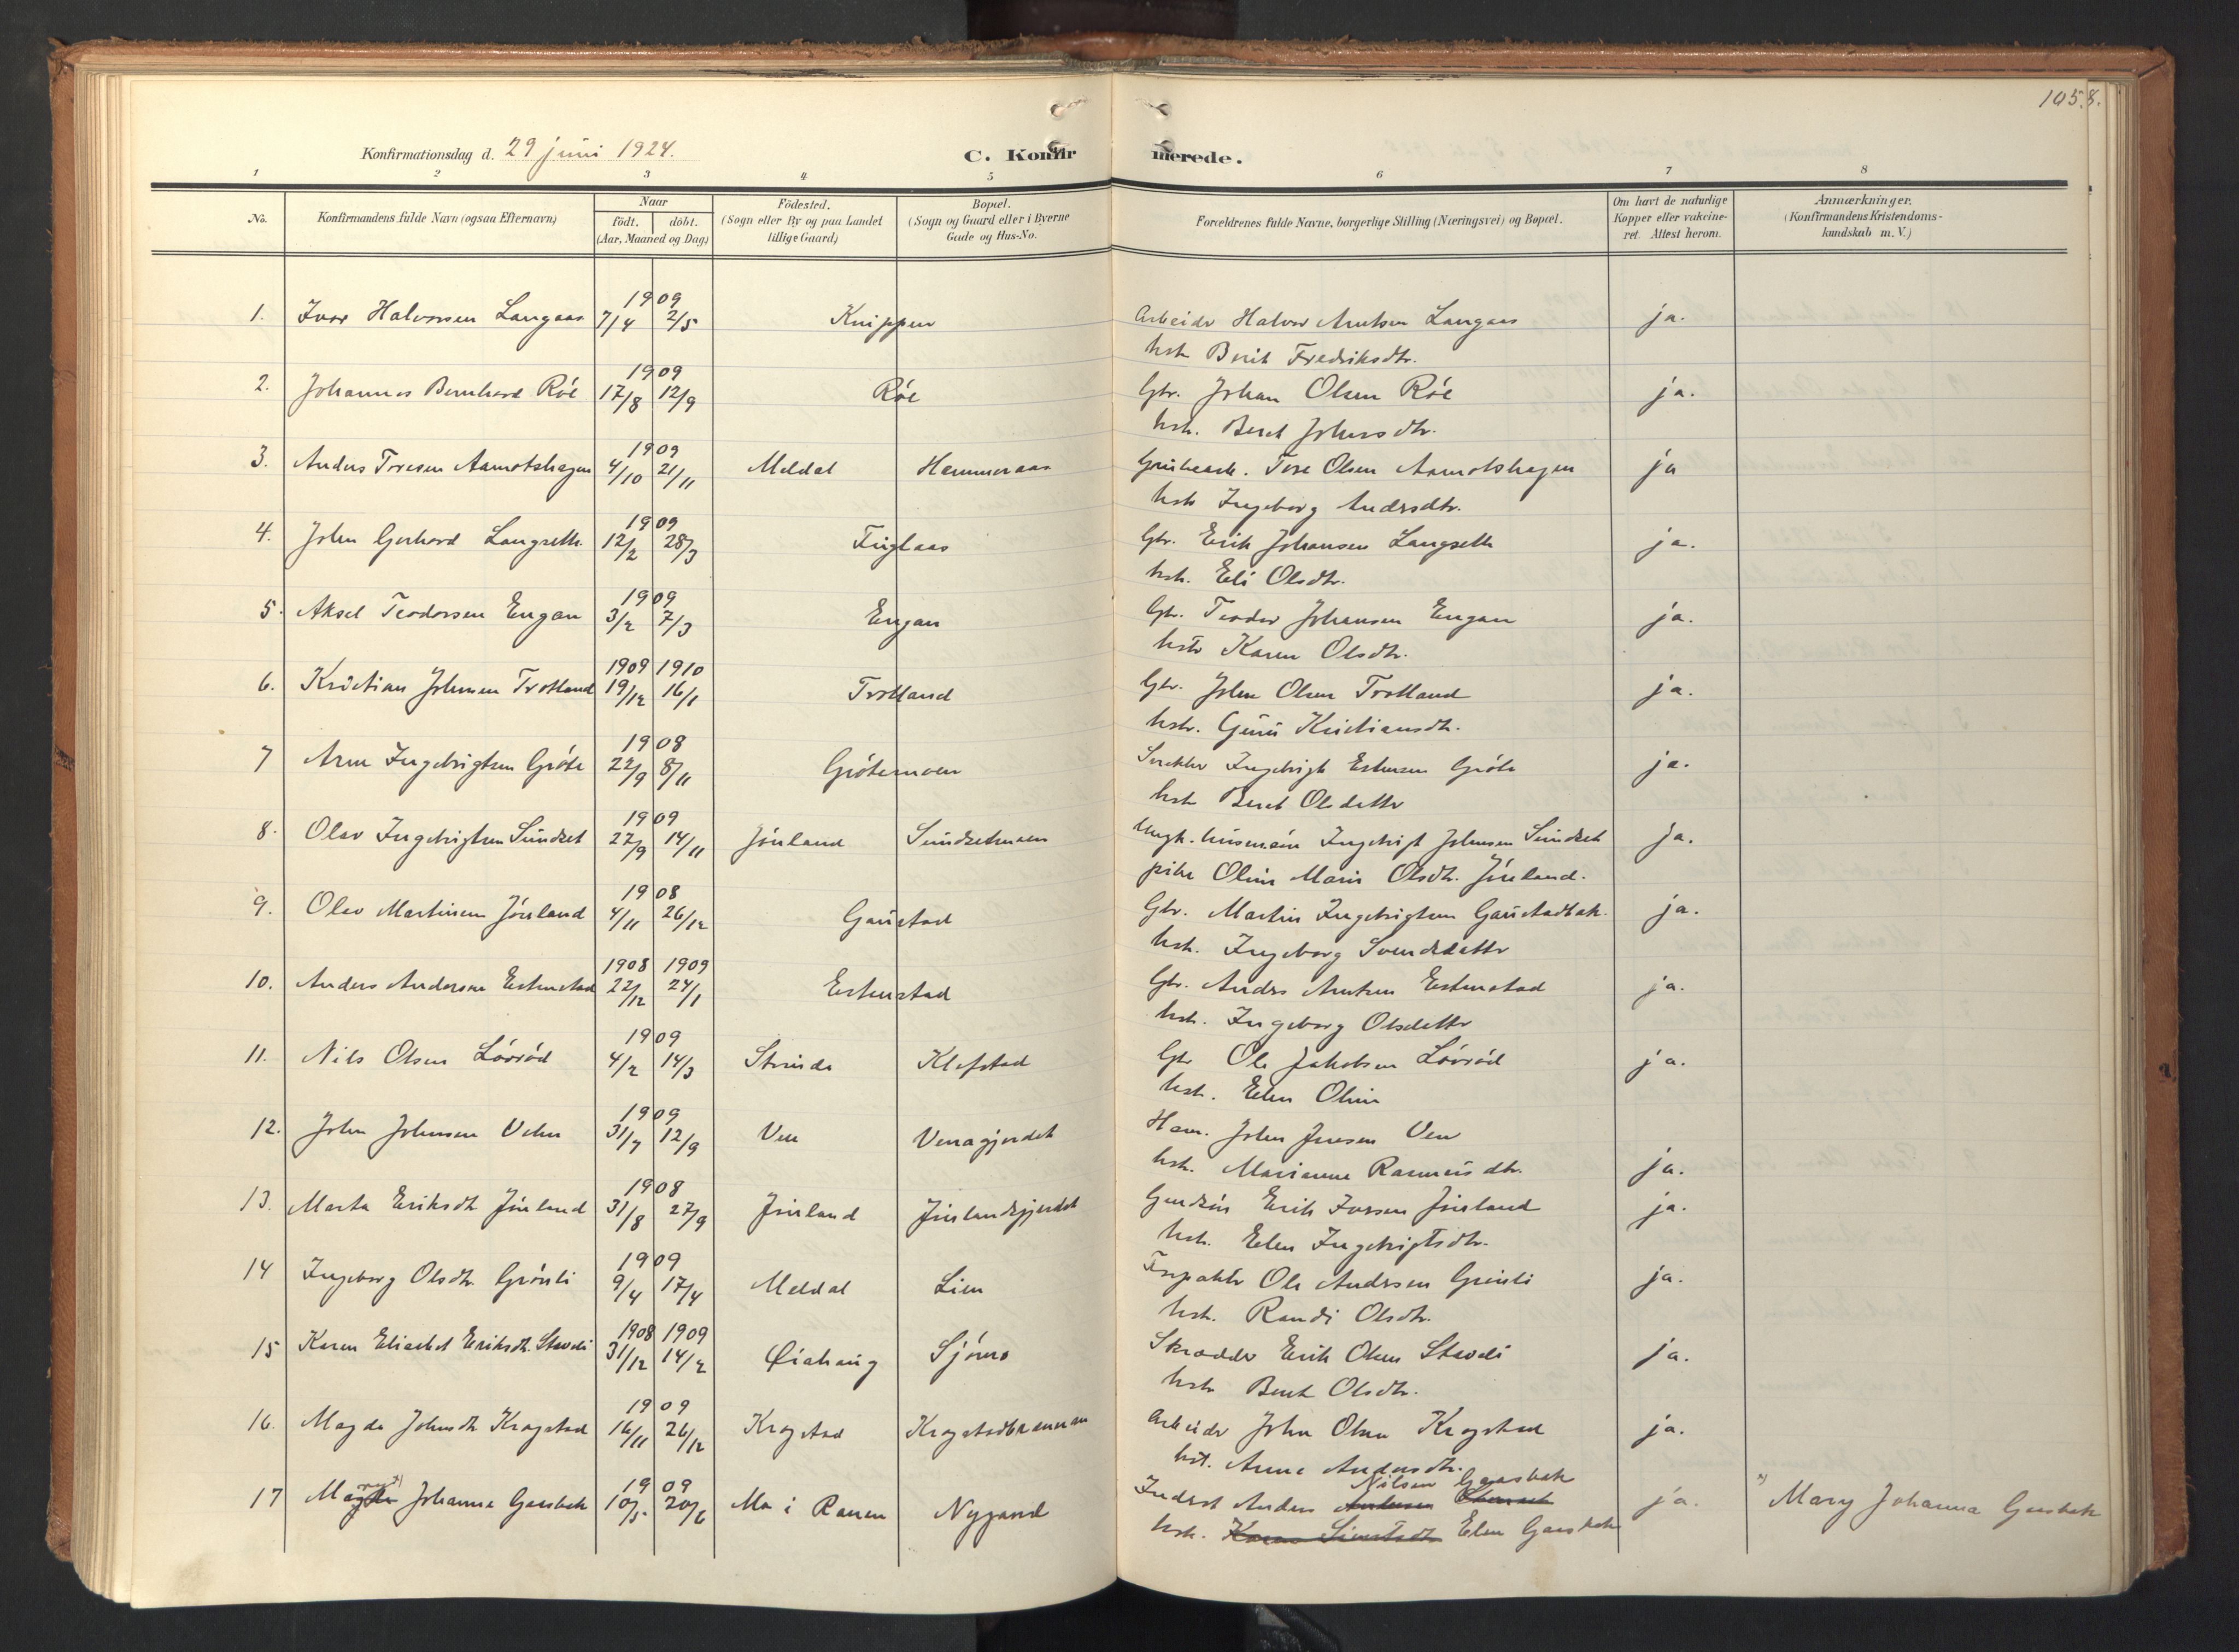 105.8.
Konfirmationsdag d. 29 juni 1924.
C. Konfirmerede.
1 2 3 4 5 6 7 8
No.
Konfirmandens fulde Navn (ogsaa Efternavn)
Naar
födt. döbt.
(Aar, Maaned og Dag)
Födested.
(Sogn eller By og paa Landet
tillige Gaard)
Bopæl.
(Sogn og Gaard eller i Byerne
Gade og Hus-No.
Forældrenes fulde Navne, borgerlige Stilling (Næringsvei) og Bopæl.
Om havt de naturlige
Kopper eller vakcine-
ret. Attest herom.
Anmærkninger.
(Konfirmandens Kristendoms-
kundskab m. V.)
1909
1. Ivar Halvorsen Langaas 7/4 2/5 Knippen Arbeider Halvor Arntsen Langaas ja.
hstr Berit Fredriksdtr.
1909
2. Johannes Bernhard Röe 17/8 12/9 Röe Gbr. Johan Olsen Röe ja.
hstr. Beret Johnsdtr.
1909
3. Anders Toresen Aamotshagen 4/10 21/11 Meldal Hammeraas Grubearb. Tore Olsen Aamotshagen ja
hstr Ingeborg Andersdtr.
1909
4. John Gerhard Langseth 12/2 28/3 Fuglaas Gbr. Erik Johansen Langseth ja.
hstr. Eli Olsdtr.
1909
5. Aksel Teodorsen Engan 3/2 7/3 Engan Gbr. Teodor Johansen Engan ja.
hstr Karen Olsdtr.
1909 1910
6. Kristian Johnsen Trotland 19/12 16/1 Trotland Gbr. John Olsen Trotland ja.
hstr. Guru Kristiansdtr.
1908
7 Arne Ingebrigtsen Gröte 22/9 8/11 Grötemoen Snekker Ingebrigt Estensen Gröte ja.
hstr Beret Olsdatter
1909
8. Olav Ingebrigtsen Sundset 27/9 14/11 Jönland Sundsetmoen Ungk. husmann Ingebrigt Johnsen Sundset ja.
pike Oline Marie Olsdtr. Jönland.
1908
9. Olav Martinsen Jönland 4/11 26/12 Gaustad Gbr. Martin Ingebrigtsen Gaustadbak. ja.
hstr. Ingeborg Svendsdatter
1908 1909
10. Anders Andersen Estenstad 22/12 24/1 Estenstad Gbr. Anders Arntsen Estenstad ja.
hstr. Ingeborg Olsdatter
1909
11. Nils Olsen Lövröd 4/2 14/3 Strinda Klefstad Gbr Ole Jakobsen Lövröd ja.
hstr. Elen Oline
1909
12. John Johnsen Vehn 31/7 12/9 Ven Venagjerdet Ham. John Jensen Ven
hstr. Marianne Rasmusdtr. ja.
1908
13. Marta Eriksdtr Jönland 31/8 27/9 Jönland Jönlandsgjerdet Gardbr Erik Iversen Jönland ja.
hstr. Elen Ingebrigtsdtr.
1909
14 Ingeborg Olsdtr. Grönli 9/4 17/4 Meldal Lien Forpakter Ole Andersen Grönli ja.
hstr. Randi Olsdtr.
1908 1909
15 Karen Elisabet Eriksdtr. Stavdi 31/12 14/2 Øiahaug Sjömo Skrædder Erik Olsen Stavdi ja.
hstr Berit Olsdtr.
1909
16. Magda Johnsdtr Krogstad 16/11 26/12 Krogstad Krogstadbrennen Arbeider John Olsen Krogstad ja.
hstr. Anne Andersdtr.
1909
17 Mary Johanna Gaasbak 10/5 20/6 Mo i Ranen Nygaard Inderst Anders Nilsen Gaasbak ja. x) Mary Johanna Gaasbak
hstr. Elen Gaasbak